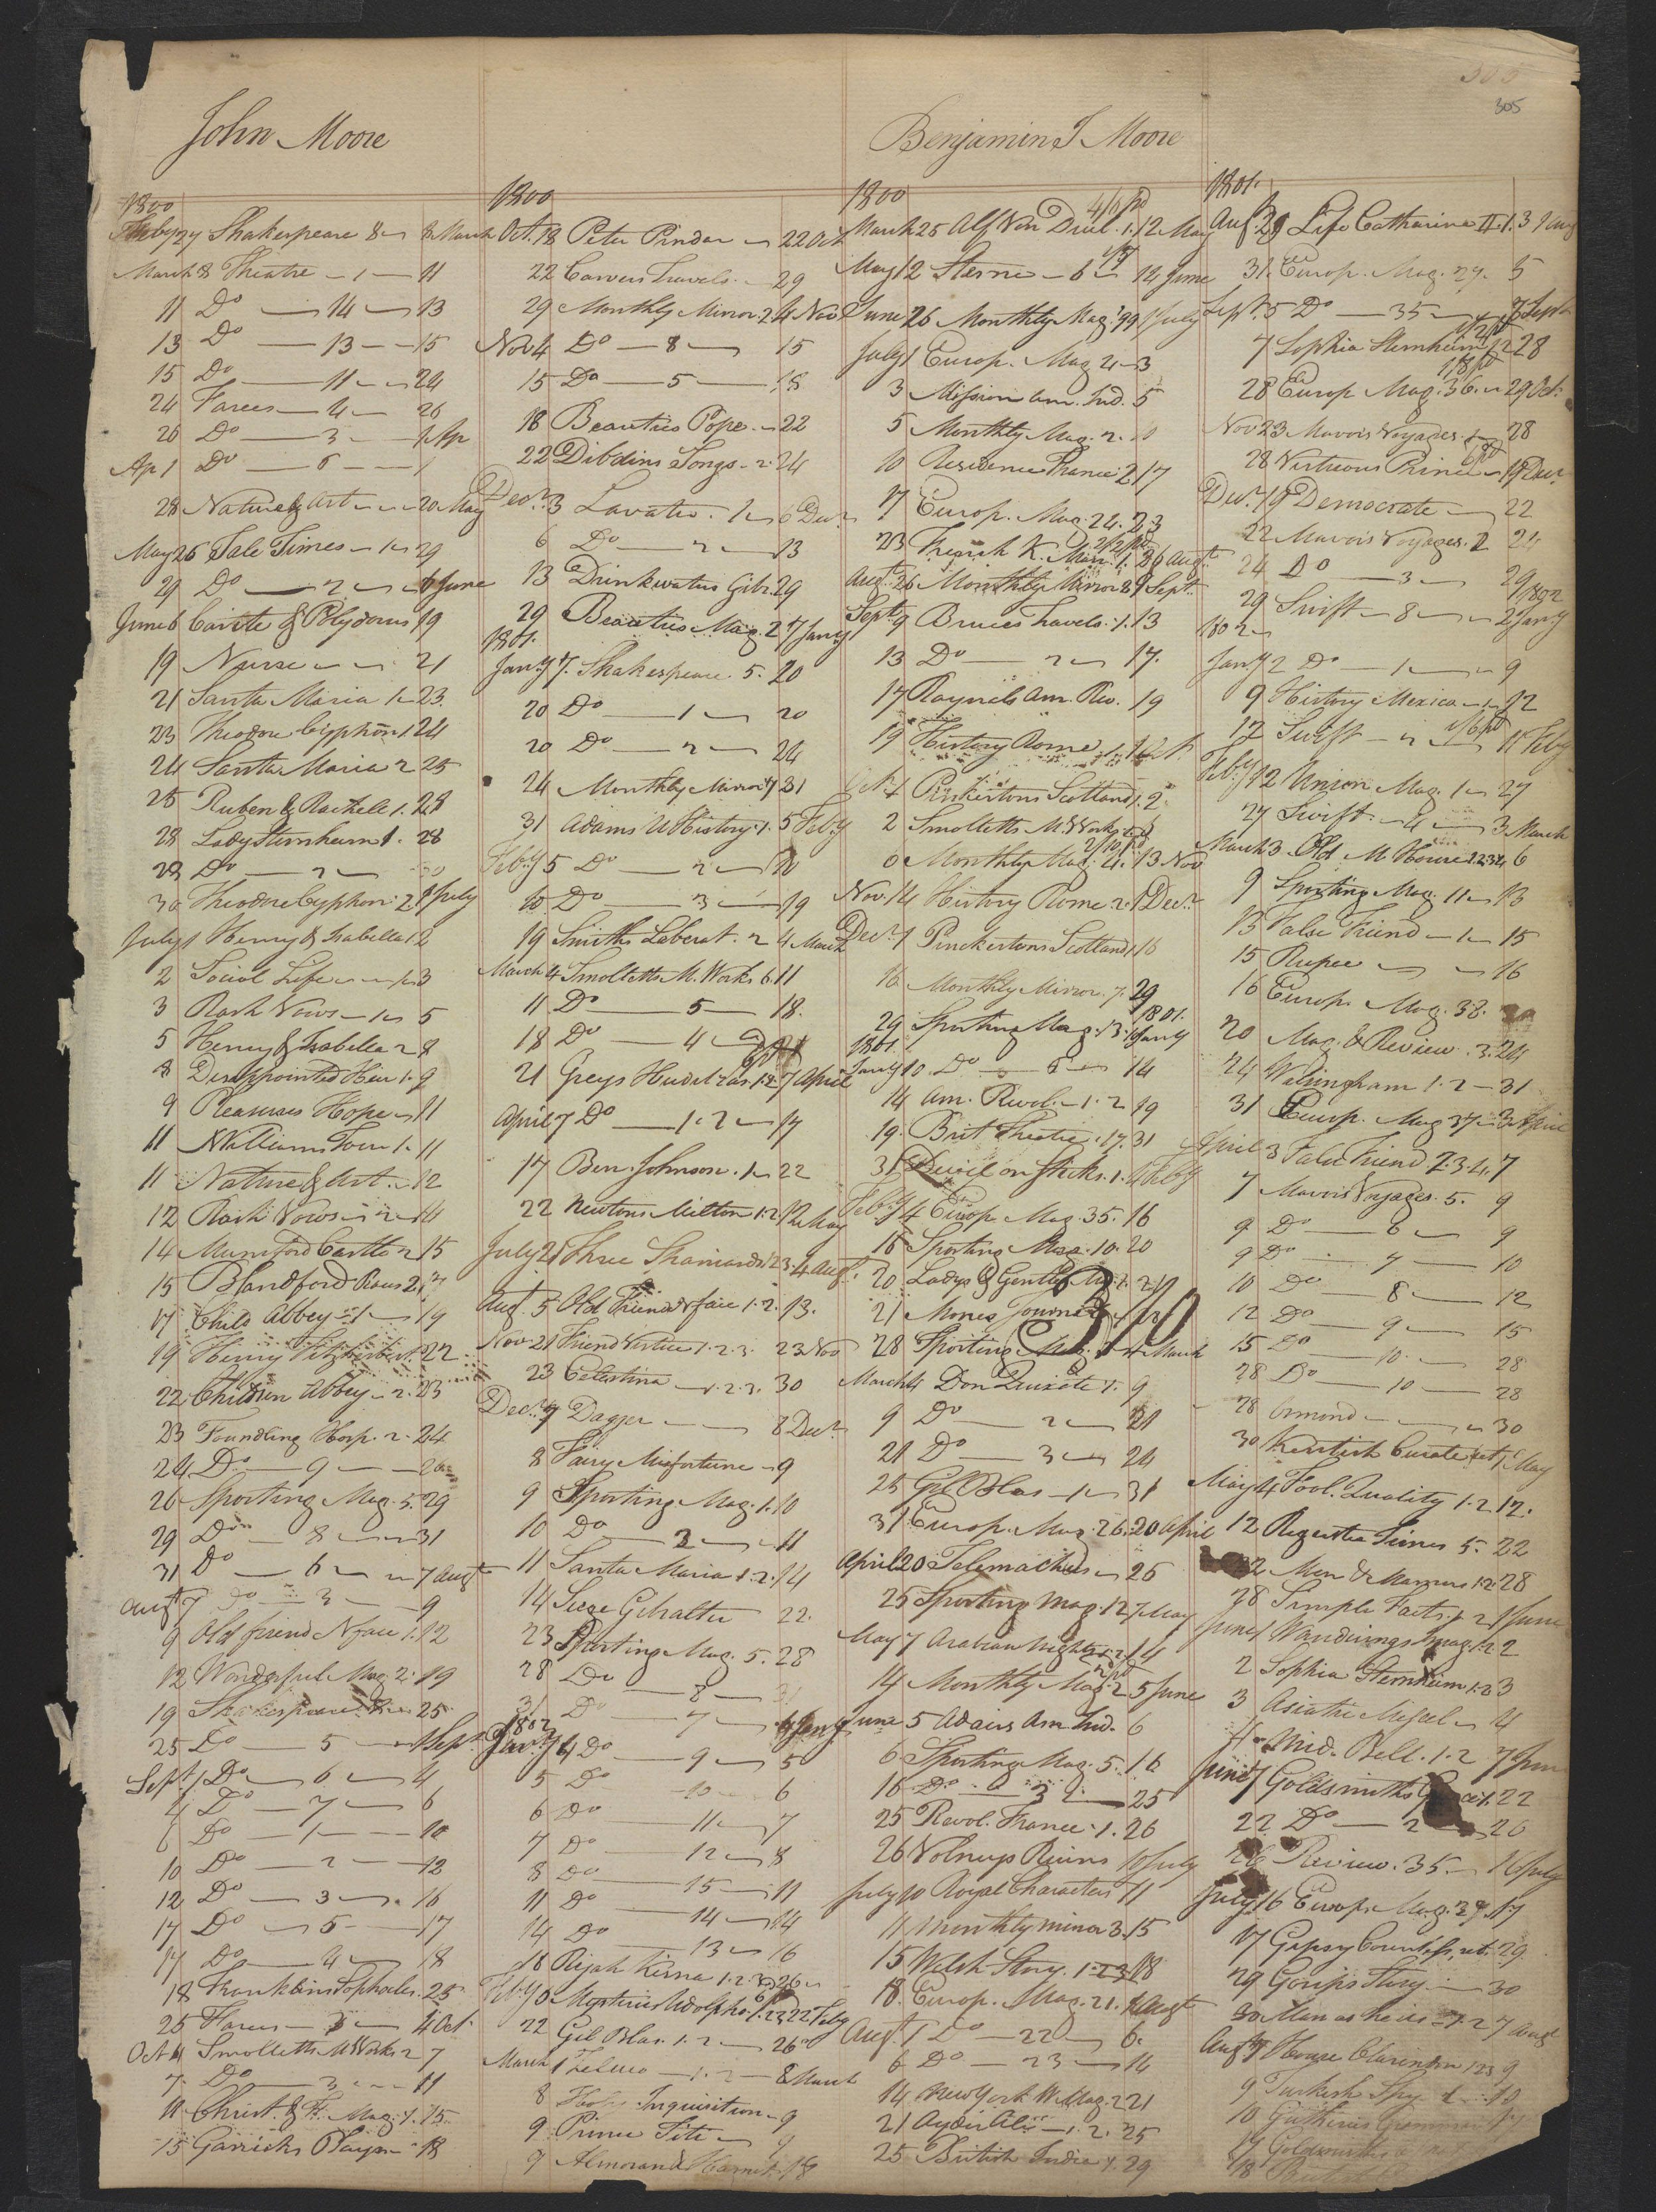 305
305
John Moore
1800
Feby 27 Shakespeare 8 8 March
March 8 Theatre 1 11
11 Do 14 13
13 Do 13 15
15 Do 11 24
24 Farces 4 26
26 Do 3 1 Ap
Ap 1 Do 6 1
28 Nature & Art 20 May
May 26 Tale Times 1 29
29 Do 2 6 June
June 6 Carite & Polydorus 19
19 Nurse 21
21 Santa Maria 1 23
23 Theodore Cyphon 1 24
24 Santa Maria 2 25
25 Ruben & Rachell 1. 28
28 Lady Sternheim 1. 28
28 Do 2
30 Theodore Cyphon 2. 1 July
July 1 Henry & Isabella 1 2
2 Social Life 1 3
3 Rash Vows 1 5
5 Henry & Isabella 2 8
8 Disappointed Heir 1. 9
9 Pleasures Hope 11
11 Williams Tour 1. 11
11 Nature & Art 12
12 Rash Vows 2 14
14 Munsford Castle 2 15
15 Blandford Races 2.
17 Child Abbey 1 19
19 Henry Fitzherbert 22
22 Children Abbey 2. 23
23 Foundling Hosp. 2. 24
24 Do 9 26
26 Sporting Mag. 5. 29
29 Do 8 31
31 Do 6 7 Augt
Augt 7 Do 3 9
9 Old friend N face 1. 12
12 Wonderful Mag. 2. 19
19 Shakespeare 25
25 Do 5 1 Sept.
Sept. 1 Do 6 4
4 Do 7 6
6 Do 1 10
10 Do 2 12
12 Do 3 16
17 Do 5 17
17 Do 4 18
18 Franklins Sophocles. 25
25 Farces 4 Oct.
Oct 4 Smolletts M Works 2 7
7. Do 3 11
11 Christ. & F. Mag. 1. 15
15 Garricks Plays 18
1800
Oct. 18 Peter Pindar 22 Oct
22 Carvers Travels 29
29 Monthly Mirror. 2 4 Nov
Nov 4 Do 8 15
15 Do 5 18
18 Beauties Pope 22
22 Dibdins Songs 2. 24
Decr. 3 Lavater. 1 6 Decr
6 Do 2 13
13 Drinkwaters Gibr. 29
29 Beauties Mag. 2 7 Jany
1801.
Jany 7. Shakespeare. 5. 20
20 Do 1 20
20 Do 2 24
24 Monthly Mirror 7 31
31 Adams U History. 1. 5 Feby
Feby 5 Do 2 10
10 Do 3 19
19 Smiths Laborat. 2 4 March
March 4 Smolletts M. Works 6. 11
11 Do 5 18.
18 Do 4 21
21 Greys Hudibras. 1.2. 7 April
April 7 Do 1. 2 17
17 Ben Johnson. 1 22
22 Newtons Milton 1.2 12 May
July 21 Three Spaniards 1.2.3. 4 Augt.
Augt. 5 Old Friend N face 1.2. 13.
Nov. 21 Friend Virtue 1. 2. 3. 23 Nov
23 Celestina 1. 2. 3. 30
Decr. 7 Dagger 8 Decr
8 Fairy Misfortune 9
9 Sporting Mag. 1. 10
10 Do 3 11
11 Santa Maria 1. 2. 14
14 Siege Gibralter 22.
23 Sporting Mag. 5. 28
28 Do 8 31
31 Do 7 4 Jany
1802
Jany. 4 Do 9 5
5 Do 10 6
6 Do 11 7
7 Do 12 8
8 Do 15 11
11 Do 14 14
14 Do 13 16
18 Rijah Kisna 1. 2. 3. 26
Feby Mysteries Udolpho 1. 2 3 22 Feby
22 Gil Blas 1. 2 26
March 1 Zeluco 1. 2 8 March
8 Inquisition 9
9 Prince Titi 9
9 Almoran & Hamet 18
Benjamin S Moore
1800
March 25 Alf Von Duel. 1. 12 May
4/6 pd
May 12 Sterne 6 12 June
June 26 Monthly Mag '99 1 July
July 1 Europ. Mag. 2 3
3 Mission Am. Ind. 5
5 Monthly Mag. 2.
10 Residence France 2 17
17 Europ. Mag. 24. 23
23 Fredk K. 1. 26 Augt.
2/2 pd
Augt. 26 Monthly Mirror 8 9 Sept.
Sept. 9 Bruces Travels. 1. 13
13 Do 2 17.
17 Raynals Am. Rev. 19
19 History Rome 1
Oct. 1 Pinkertons Scotland 1. 2
2 Smolletts M. Works
2/10 pd
6 Monthly Mag. 4. 13 Nov
Nov. 14 History Rome. 2. 1 Decr.
Decr. 1 Pinckertons Scotland 16
16 Monthly Mirror. 7. 29
29 Sporting Mag. 13. 10 Jany
1801.
1801.
Jany 10. Do 8 14
14 Am. Revol. 1. 2. 19
19. Brit. Theatre. 17. 31
31 Devil on Sticks. 1. 4 Feby
Feby 4 Europ. Mag. 35. 16
16 Sporting Mag. 10. 20
20 Ladys & Gentle. Mag. 1. 21
21 Mores Journal
310
28 Sporting Mag. 4 March
March 4 Don Quixote 1. 9
9 Do 2 21
21 Do 3 24
25 Gil Blas 1 31
31 Europ. Mag. 26. 20 April
April 20 Telemachus 25
25 Sporting Mag. 12 7 May
May 7 Arabian Nights 1. 2 14
14 Monthly Mag. 2 5 June
June 5 Adairs Am. Ind. 6
6 Sporting Mag. 5. 16
16 Do 3 25
25 Revol. France. 1. 26
26 Volneys Ruins 10 July
July 10 Royal Characters 11
11 Monthly Mirror 3. 15
15 Welsh Story. 1. 2 3 18
18. Europ. Mag. 21. 1 Augt
Augt. 1 Do 22 6.
6 Do 23 14
14 New York W. Mag. 2 21
21 Ayder Ali 1. 2. 25
25 British India 1. 29
1801.
Augt. 29 Life Catharine II. 1. 31 Aug
31. Europ. Mag. 29. 5
Sept. 5 Do 35 7 Sept
7 Sophia Sternheim 1 2 28
28 Europ Mag. 36. 29 Oct.
Nov 23 Mavors Voyages. 1 28
28 Virtuous Prince 19 Decr.
Decr. 19 Democrate 22
22 Mavors Voyages. 2 24
24 Do 3 29
1802
29 Swift 8 2 Jany
1802
Jany 2 Do 1 9
9 History Mexico 1 12
12 Swift 2 11 Feby
Feby 12 Union Mag. 1 27
27 Swift 4 3 March
March 3. Old M House 1 2 3 4 6
9 Sporting Mag. 11 13
13 False Friend 1 15
15 Rupee 16
16 Europ. Mag. 38. 20
20 Mag. & Review. 3. 24
24 Walsingham 1. 2 31
31 Europ. Mag 37 3 April
April 3 False Friend 2. 3. 4. 7
7 Mavors Voyages. 5. 9
9 Do 6 9
9 Do 7 10
10 Do 8 12
12 Do 9 15
15 Do 10 28
28 Do 10 28
28 Ormond 30
30 Kentish Curate 1 May
May 4 Fool. Quality 1. 2 12.
12 Register Times 5. 22
22 Men & Manners 1.2. 28
28 Simple Facts. 1. 2 1 June
June 1 Wanderings Imag. 1.2 2
2 Sophia Sternheim 1. 2 3
3 Asiatic Miscel. 4
4 Mid. Bell. 1. 2 7 June
June 7 Goldsmiths Greece 1. 22
22 Do 2 26
26 Review. 35 16 July
July 16 Europ. Mag. 39. 17
17 Gipsy Countess, 29.
29 Gossips Story 30
30 Man as he is 1. 2 7 Augt
Augt 7 House Clarendon 1 2 3 9
9 Turkish Spy 1 10
10 Guthries Grammar 17
17 Goldsmiths
18 British